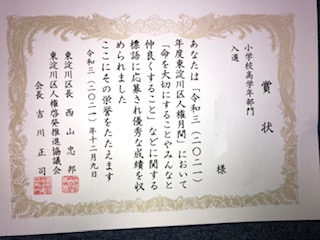 賞状
小学校高学年部門
入選
様
あなたは「令和三(二〇二一)
年度東淀川区人権月間」において
「命を大切にすることやみんなと
仲良くすること」などに関する
標語に応募され優秀な成績を収
められました
ここにその栄誉をたたえます
令和三(二〇二一)年十二月九日
東淀川区長 西山忠邦
東淀川区人権啓発推進協議会
会長 吉川正司